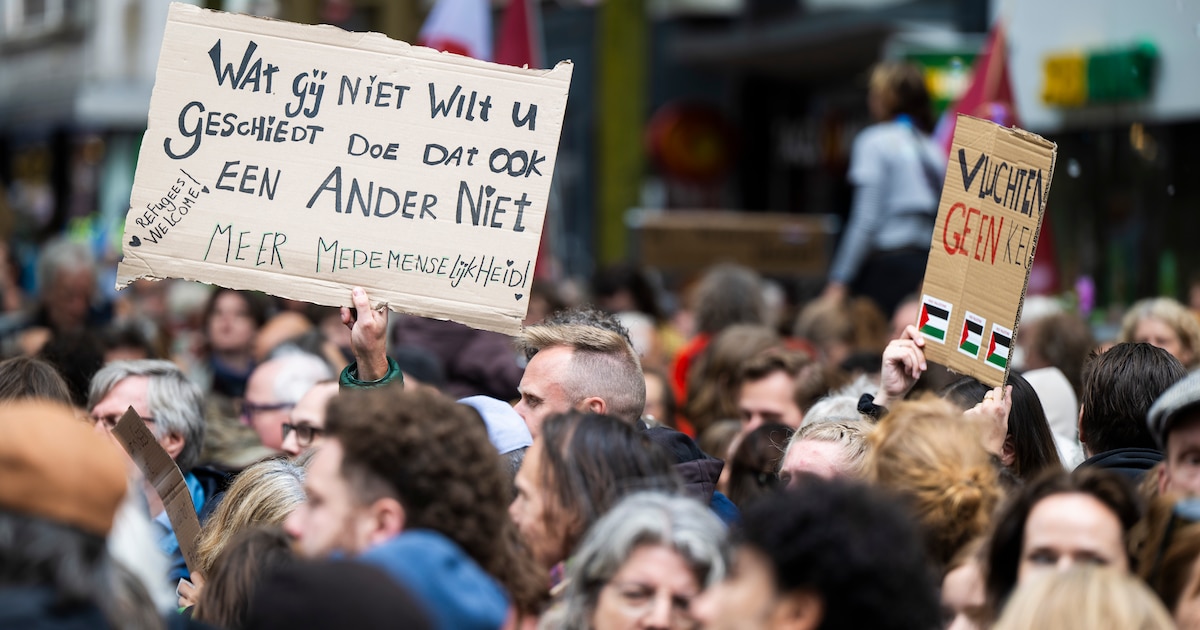 WAT gij NIET WilT u
GESCHiEDT DOE DAT OOK
EEN ANDER NiET
REFUGEES!
WELCOME!
MEER MEDEMENSElijkHEiD!
VLUCHTEN
GEEN